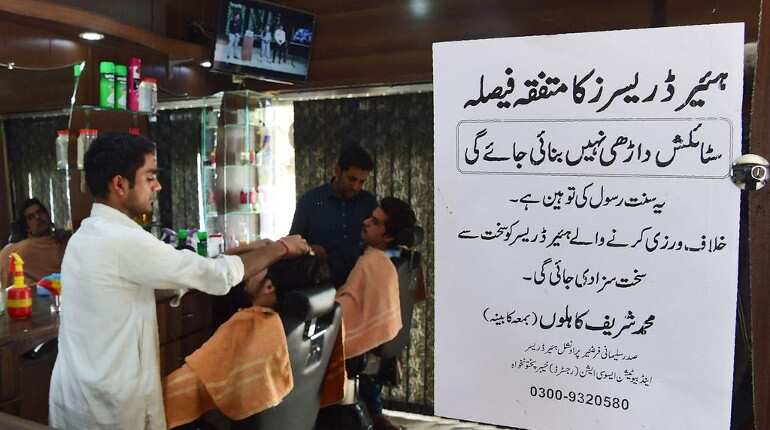 ہئیر ڈریسرز کا متفقہ فیصلہ
سٹائلش داڑھی نہیں بنائی جائے گی
یہ سنت رسول کی توہین ہے۔
خلاف ورزی کرنے والے ہئیر ڈریسر کو سخت سے
سخت سزا دی جائی گی۔
محمد شریف کاہلوں (بمعہ کابینہ)
صدر سلیمانی فرنٹیئر پراونشل ہئیر ڈریسر
اینڈ بیوٹیشن ایسوسی ایشن (رجسٹرڈ) خیبر پختونخواہ
0300-9320580